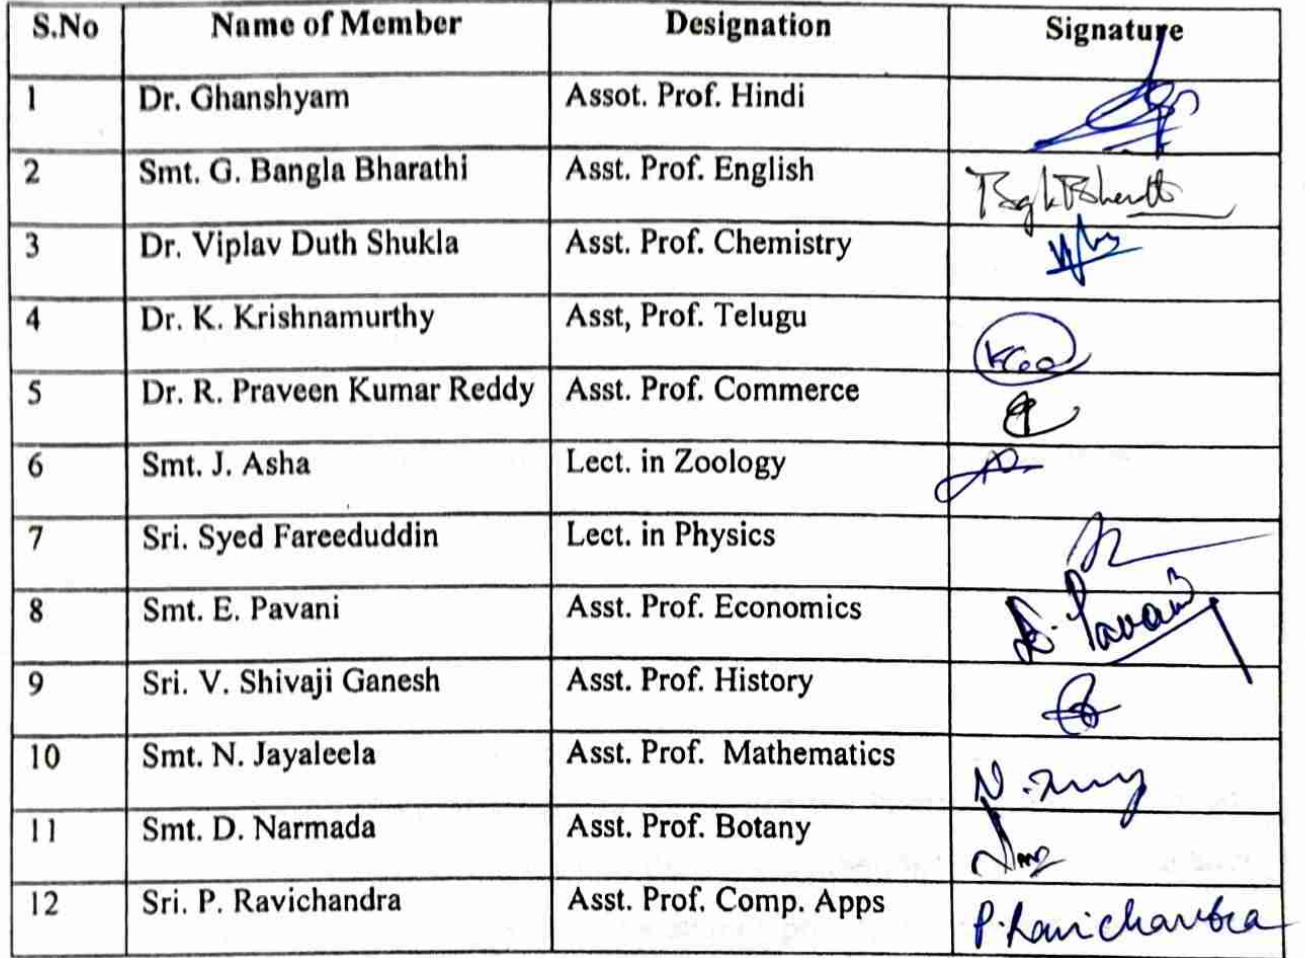 S.No Name of Member Designation Signature
1 Dr. Ghanshyam Assot. Prof. Hindi
2 Smt. G. Bangla Bharathi Asst. Prof. English
3 Dr. Viplav Duth Shukla Asst. Prof. Chemistry
4 Dr. K. Krishnamurthy Asst, Prof. Telugu
5 Dr. R. Praveen Kumar Reddy Asst. Prof. Commerce
6 Smt. J. Asha Lect. in Zoology
7 Sri. Syed Fareeduddin Lect. in Physics
8 Smt. E. Pavani Asst. Prof. Economics Pavani
9 Sri. V. Shivaji Ganesh Asst. Prof. History
10 Smt. N. Jayaleela Asst. Prof. Mathematics N.
11 Smt. D. Narmada Asst. Prof. Botany
12 Sri. P. Ravichandra Asst. Prof. Comp. Apps P. Ravichandra